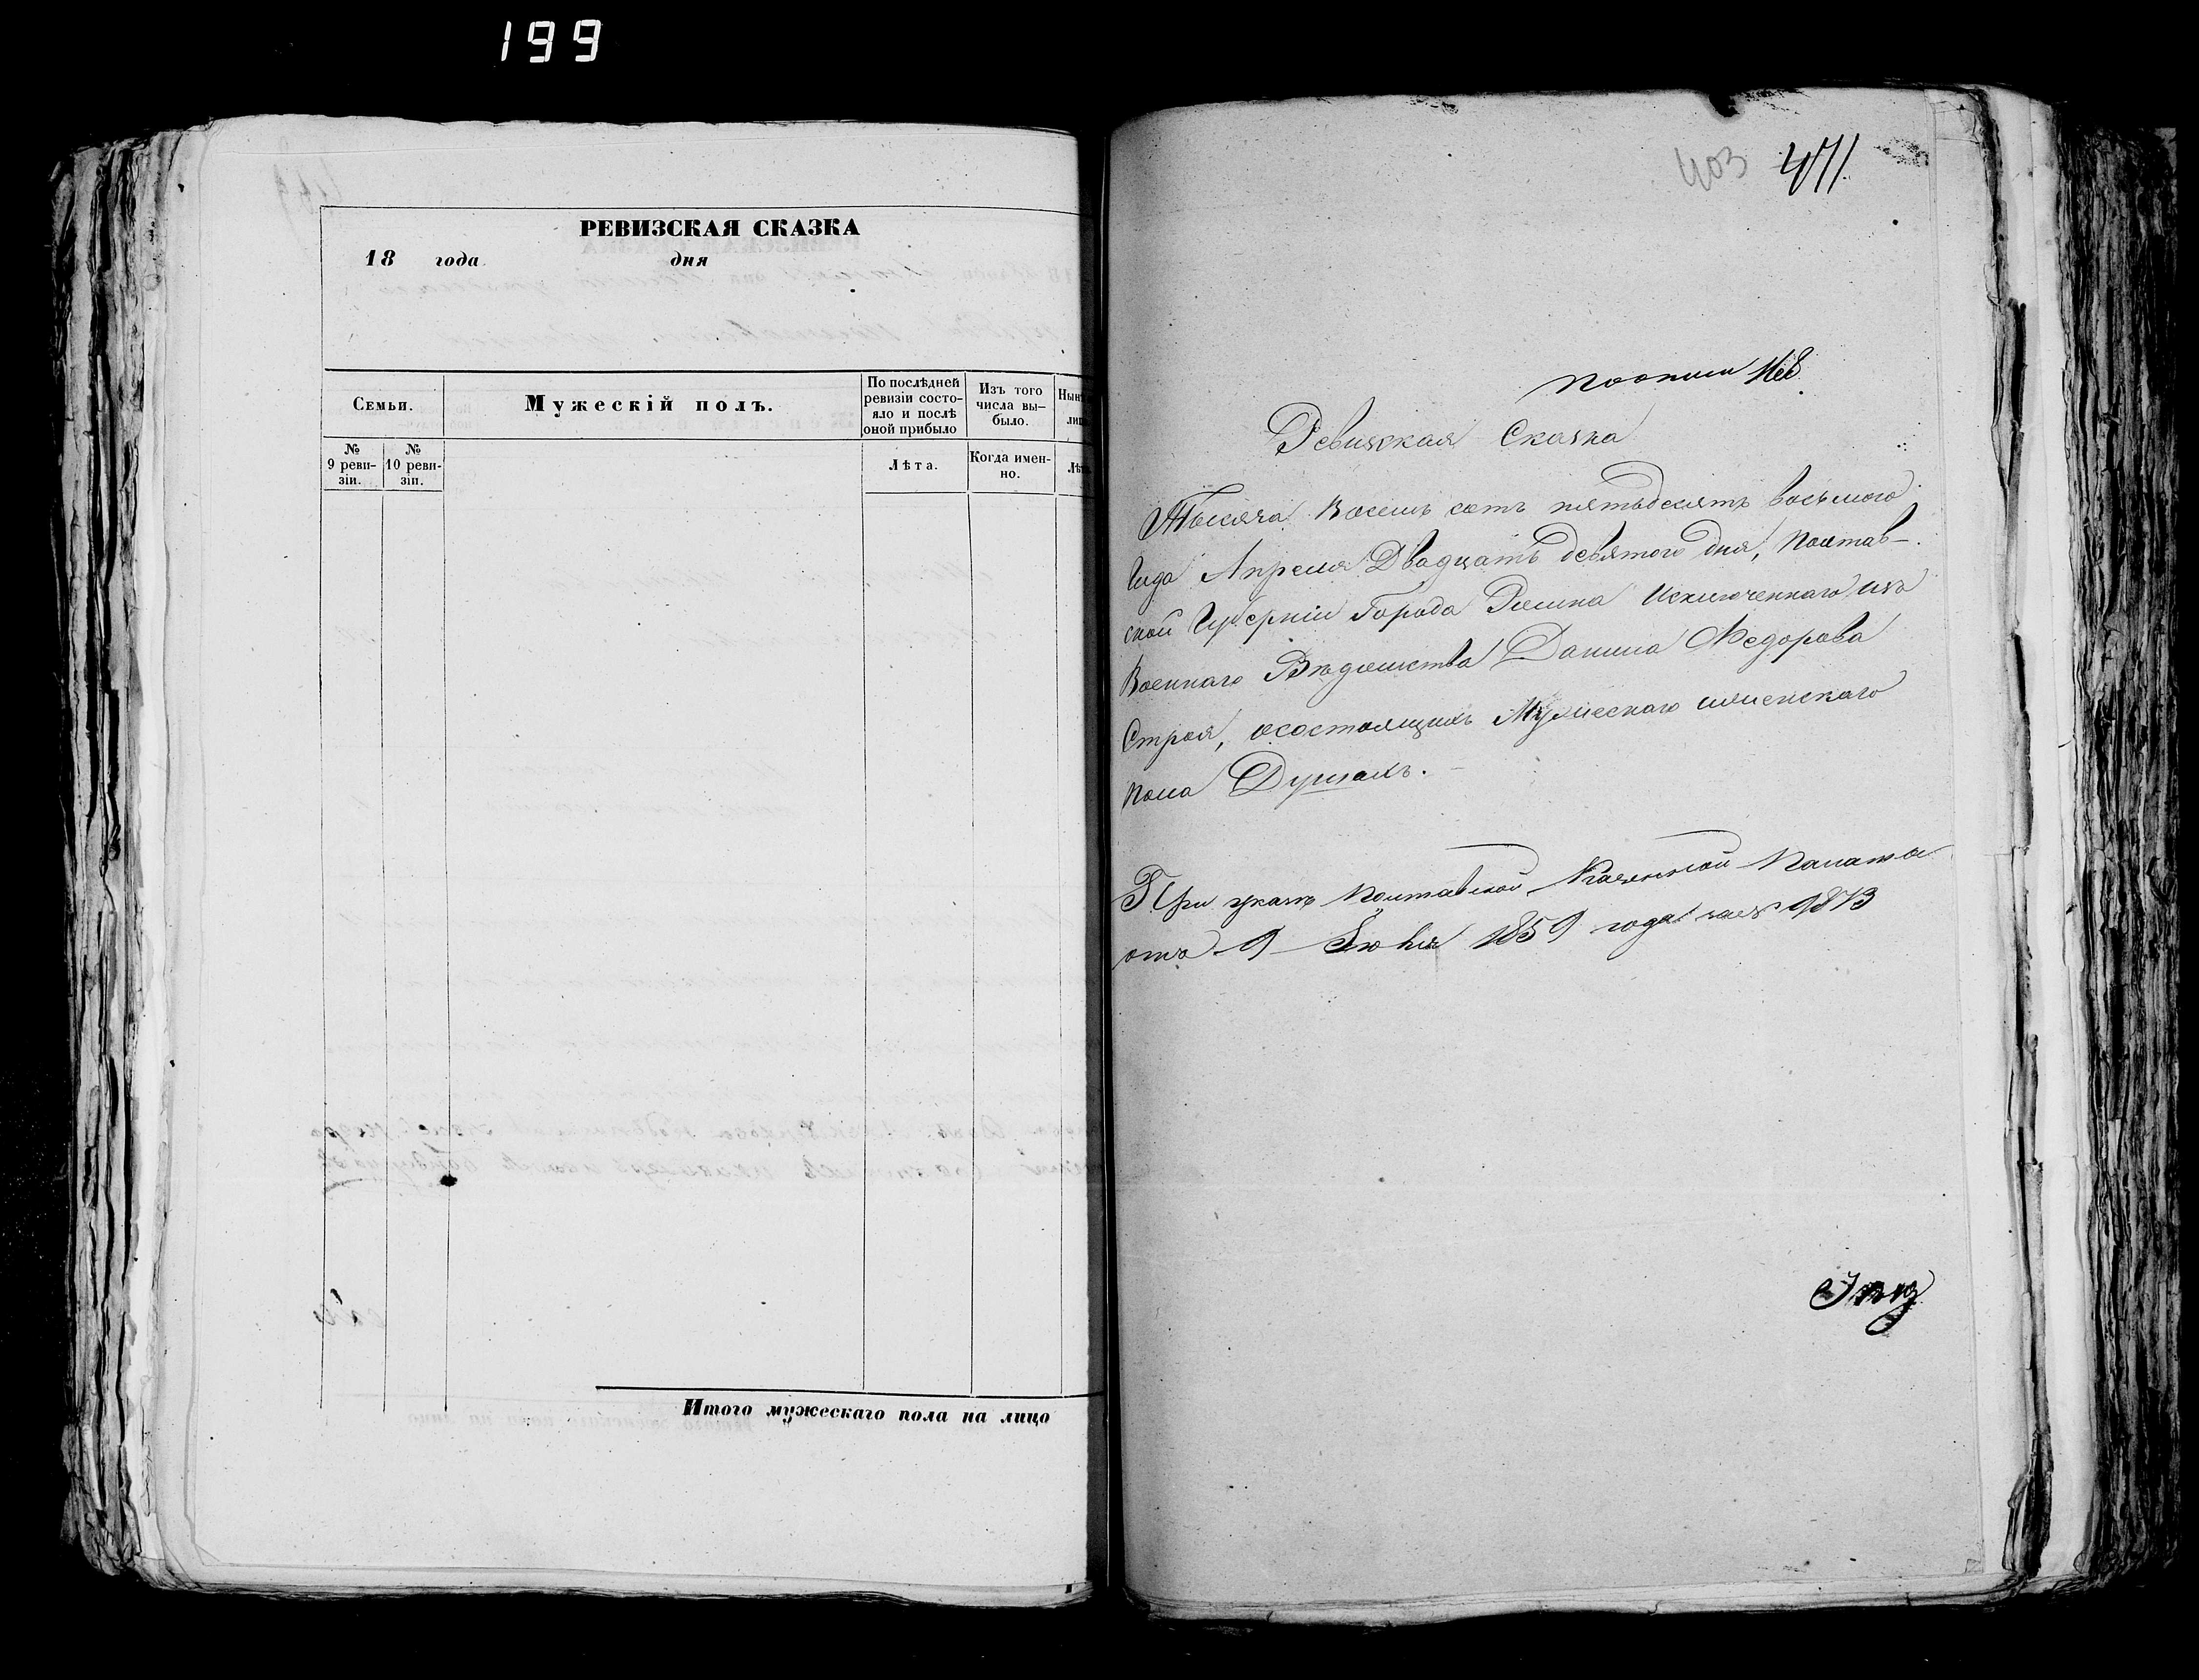 199
РЕВИЗСКАЯ СКАЗКА
18 года дня
Семьи.
Мужескій полъ.
По послѣдней ревизіи состо-
яло и послѣ
оной прибыло
Изъ того
числа вы-
было.
№
9 реви-
зіи.
№
10 реви-
зіи.
Лѣта.
Когда имен-
но.
Итого мужескаго пола на лицо
403 471
По описи
Ревизская Сказка
Тысяча Восемь сотъ пятьдесятъ восьмого
Года Апреля Двадцать девятого дня, Полтав-
ской Губерніи Города Ромна Исключеннаго изъ
Военнаго Вѣдомства Данила Федорова
Строя, осостоящихъ Мужескаго иженскаго
пола Душахъ.
При указѣ Полтавской Казенной Палаты
отъ 9 Іюня 1859 года за № 9873